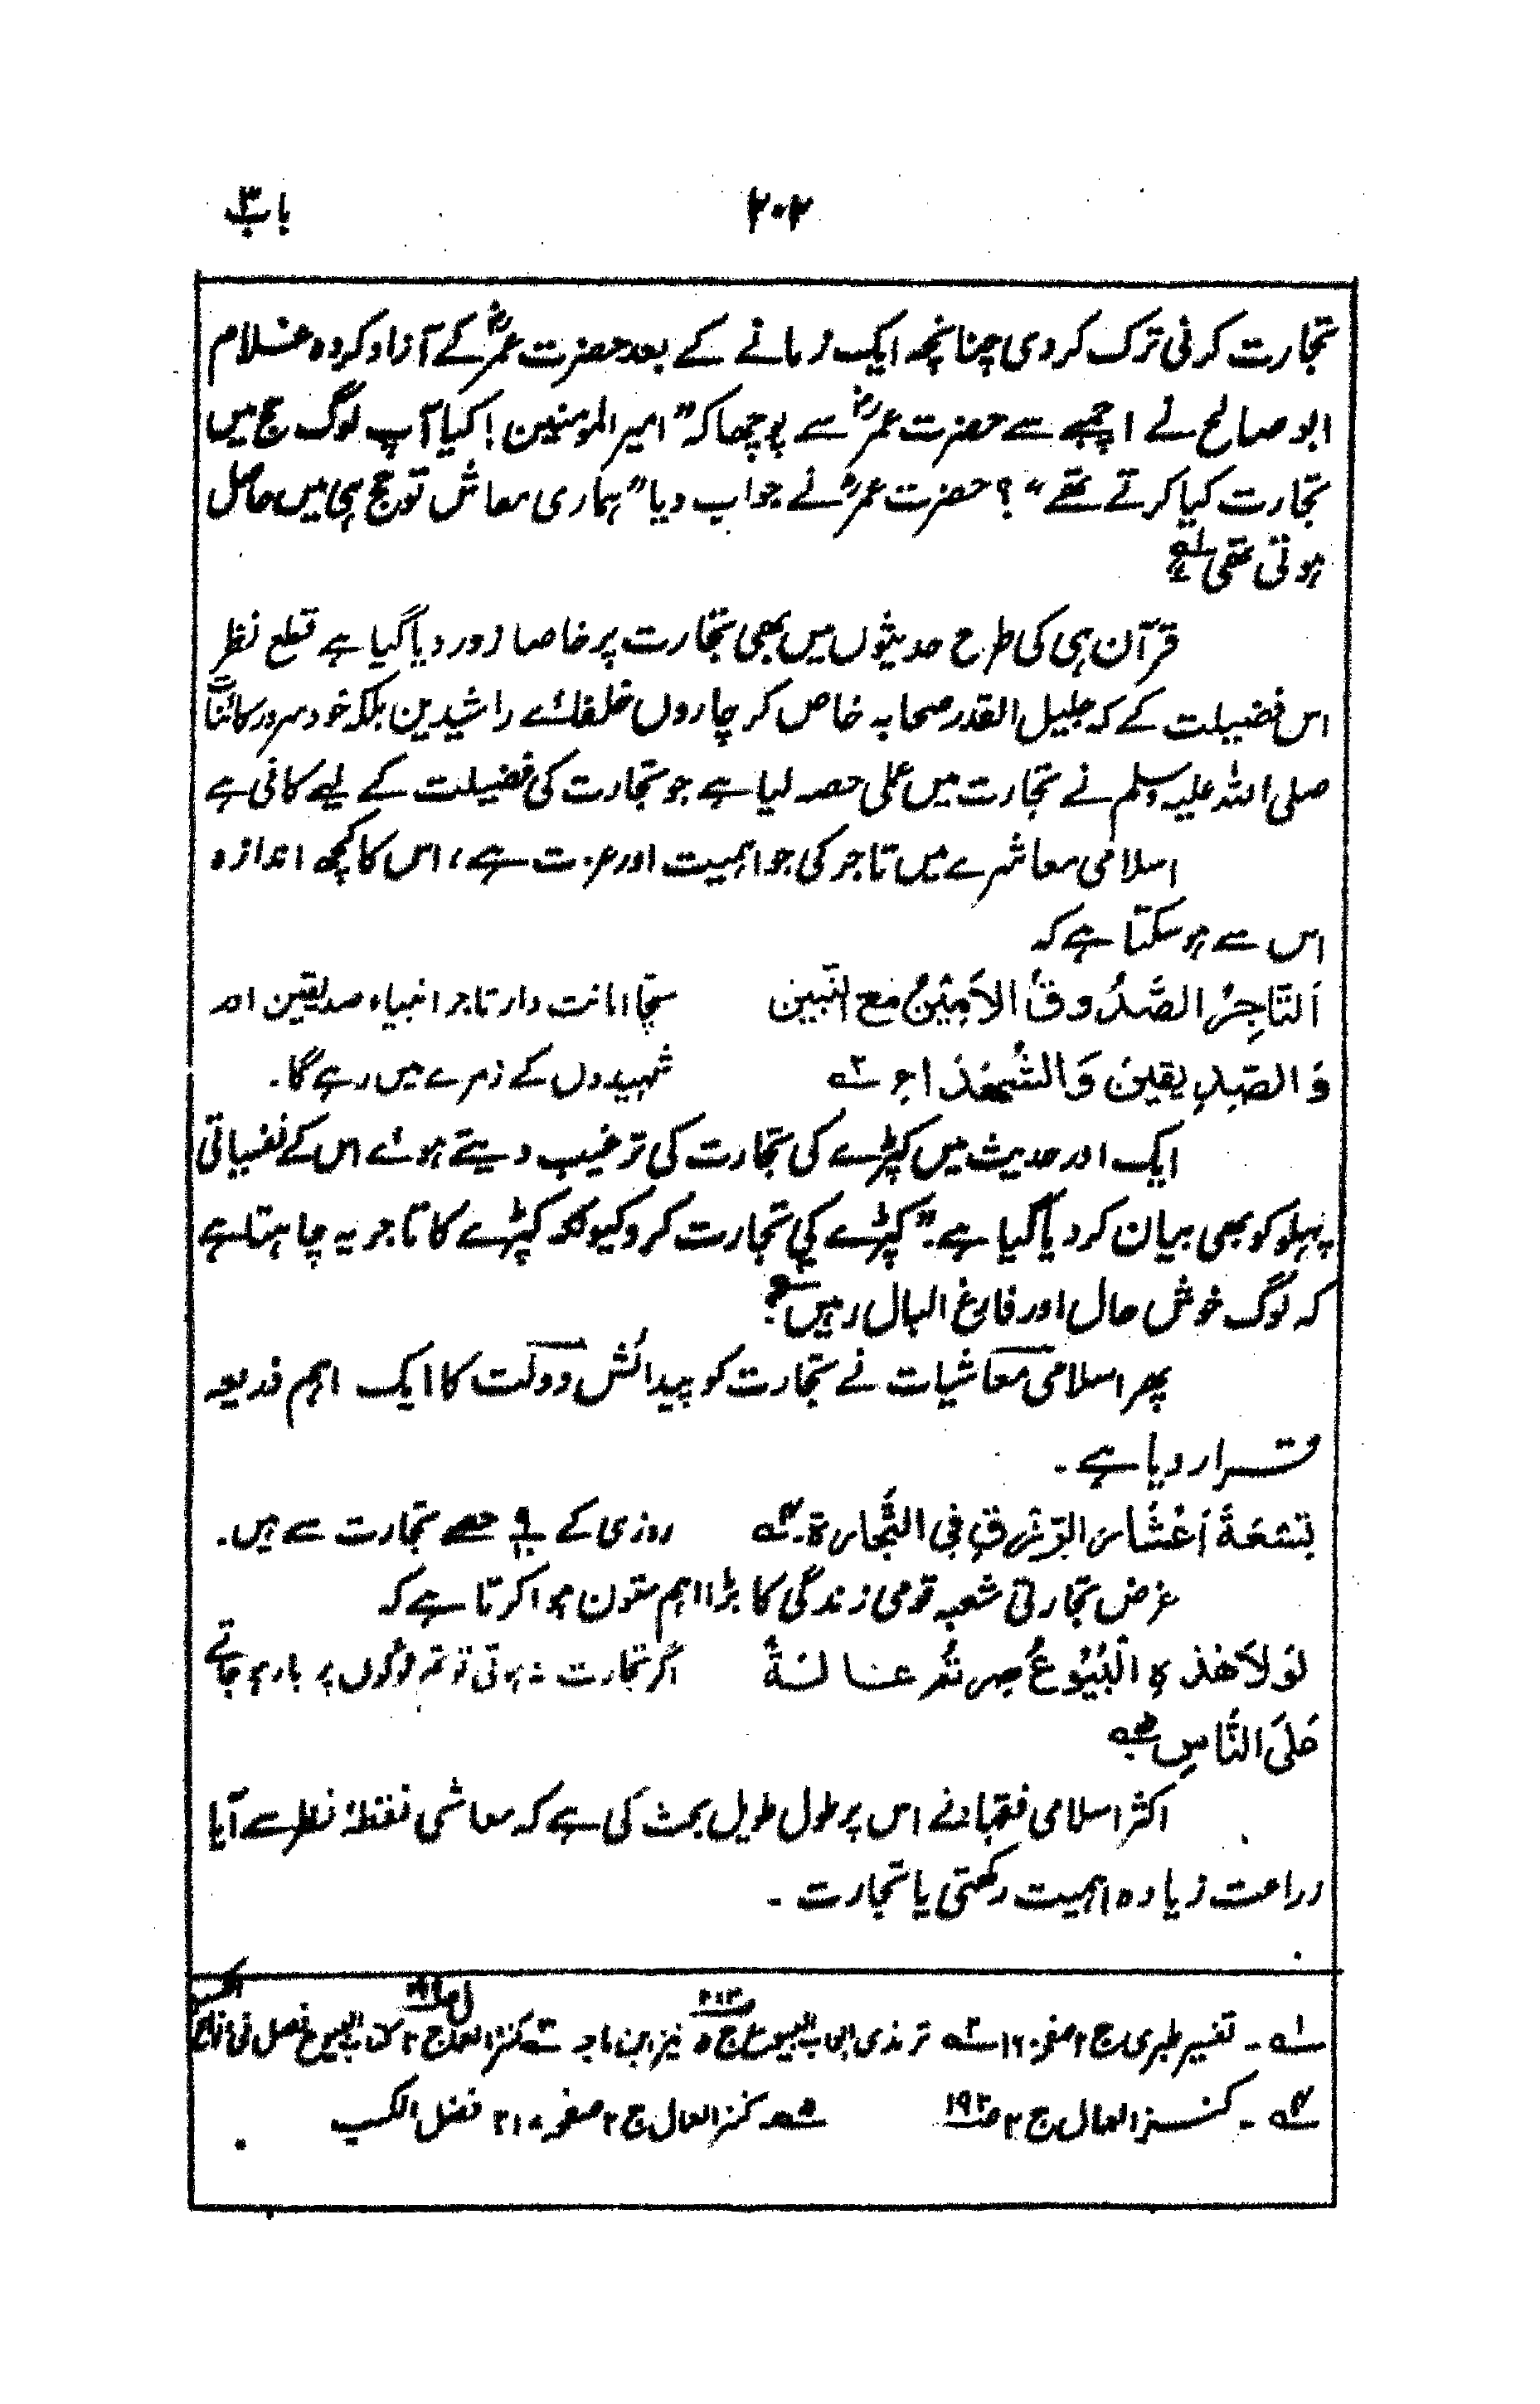 باب ۳
۲۰۲
تجارت کرنی ترک کر دی چنانچہ ایک زمانے کے بعد حضرت عمرؓ کے آزاد کردہ غلام
ابو صالح نے اچمبے سے حضرت عمرؓ سے پوچھا کہ ”امیر المومنین! کیا آپ لوگ حج میں
تجارت کیا کرتے تھے“؟ حضرت عمرؓ نے جواب دیا ”ہماری معاش تو حج ہی میں حاصل
ہوتی تھی“ ۱ه
قرآن ہی کی طرح حدیثوں میں بھی تجارت پر خاصا زور دیا گیا ہے قطع نظر
اس فضیلت کے کہ جلیل القدر صحابہ خاص کر چاروں خلفائے راشدین بلکہ خود سرور کائناتؐ
صلی اللہ علیہ وسلم نے تجارت میں عملی حصہ لیا ہے جو تجارت کی فضیلت کے لیے کافی ہے
اسلامی معاشرے میں تاجر کی جو اہمیت اور عزت ہے، اس کا کچھ اندازہ
اس سے ہو سکتا ہے کہ
اَلتَّاجِرُ الصَّدُوقُ الاَمِیْنُ مَع النَّبین
سچا امانت دار تاجر انبیاء صدیقین اور
وَ الصِّدِیقین وَ الشُّهَدَاءِ ۲ه
شہیدوں کے زمرے میں رہے گا۔
ایک اور حدیث میں کپڑے کی تجارت کی ترغیب دیتے ہوئے اس کے نفسیاتی
پہلو کو بھی بیان کر دیا گیا ہے: ”کپڑے کی تجارت کرو کیونکہ کپڑے کا تاجر یہ چاہتا ہے
کہ لوگ خوش حال اور فارغ البال رہیں“ ۳ه
پھر اسلامی معاشیات نے تجارت کو پیدائش دولت کا ایک اہم ذریعہ
قرار دیا ہے۔
تِسْعَةُ اَعْشَارِ الرِّزقِ فِی التِّجارة۔ ۴ه
روزی کے ۹/۱۰ حصے تجارت سے ہیں۔
غرض تجارتی شعبہ قومی زندگی کا بڑا اہم ستون ہوا کرتا ہے کہ
لَوْلاَ هٰذِهِ الْبُیُوْعُ صِرتُم عَالَةً
اگر تجارت نہ ہوتی تو تم لوگوں پر بار ہو جاتے
عَلَی النَّاسِ ۵ه
اکثر اسلامی فقہاء نے اس پر طول طویل بحث کی ہے کہ معاشی نقطۂ نظر سے آیا
زراعت زیادہ اہمیت رکھتی یا تجارت۔
۱ه۔ تفسیر طبری ج ۲ صفحہ ۱۶۰ ۲ه ترمذی ابواب البیوع ج ۵ نیز ابن ماجہ ۳ه کنز العمال ج ۲ کتاب البیوع فصل فی
۴ه۔ کنز العمال ج ۲ ص ۱۹۳ ۵ه کنز العمال ج ۲ صفحہ ۲۱۰ فضل الکسب